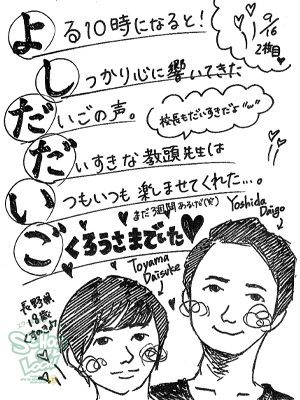 よる10時になると！
9/16
2枚目
しっかり心に響いてきた
だいごの声。
校長もだいすきだよ"
だいすきな教頭先生は
いつもいつも楽しませてくれた…。
まだ3週間あるが(笑)
ごくろうさまでした
Yoshida
Daigo
Toyama
Daisuke
長野県
18歳
SCHOOL
OF LOCK!